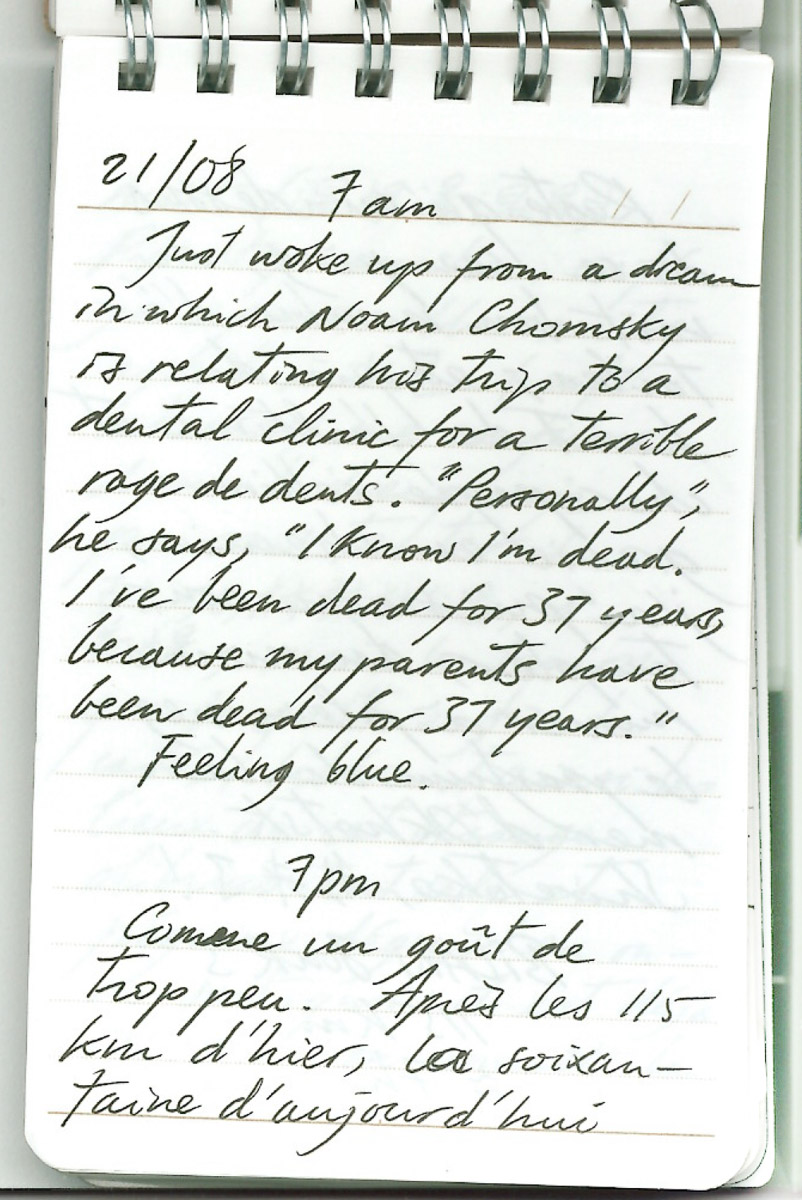 21/08 7am
Just woke up from a dream
in which Noam Chomsky
is relating his trip to a
dental clinic for a terrible
rage de dents. "Personally",
he says, "I know I'm dead.
I've been dead for 37 years,
because my parents have
been dead for 37 years."
Feeling blue.
7pm
Comme un goût de
trop peu. Après les 115
km d'hier, la soixan-
taine d'aujourd'hui